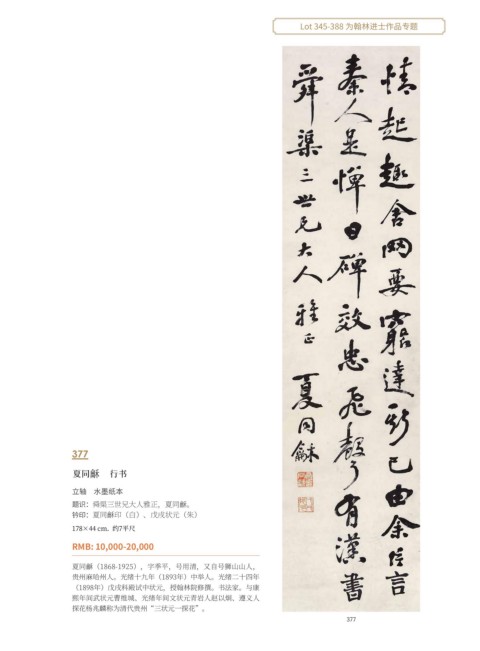 Lot 345-388 为翰林进士作品专题
情起趣舍网要窮達斯已由余言
秦人是憚日磾效忠飛聲有漢書
舜渠三世兄大人雅正 夏同龢
377
夏同龢 行书
立轴 水墨纸本
题识：舜渠三世兄大人雅正，夏同龢。
钤印：夏同龢印（白）、戊戌状元（朱）
178×44 cm. 约7平尺
RMB: 10,000-20,000
夏同龢（1868-1925），字季平，号用清，又自号狮山山人，
贵州麻哈州人。光绪十九年（1893年）中举人。光绪二十四年
（1898年）戊戌科殿试中状元，授翰林院修撰。书法家。与康
熙年间武状元曹维城、光绪年间文状元青岩人赵以炯、遵义人
探花杨兆麟称为清代贵州“三状元一探花”。
377